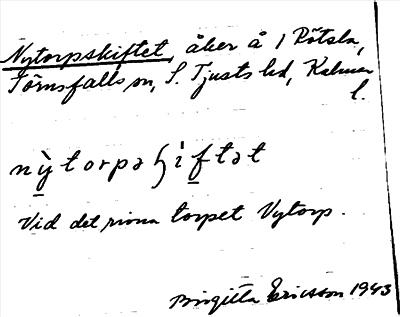 Nytorpskiftet, åker å 1 Rötsla,
Törnsfalls sn, S. Tjusts hd, Kalmar
l.
nỳtorpəʃiftət
Vid det rivna torpet Nytorp.
Birgitta Ericsson 1943